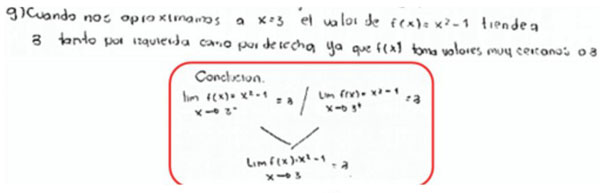 g) Cuando nos aproximamos a x=3 el valor de f(x)= x²-1 tiende a
8 tanto por izquierda como por derecha, ya que f(x) toma valores muy cercanos a 8
Conclusion.
lim f(x)= x²-1 = 8 / Lim f(x)= x²-1 = 8
x→3⁻ x→3⁺
Lim f(x)=x²-1 = 8
x→3